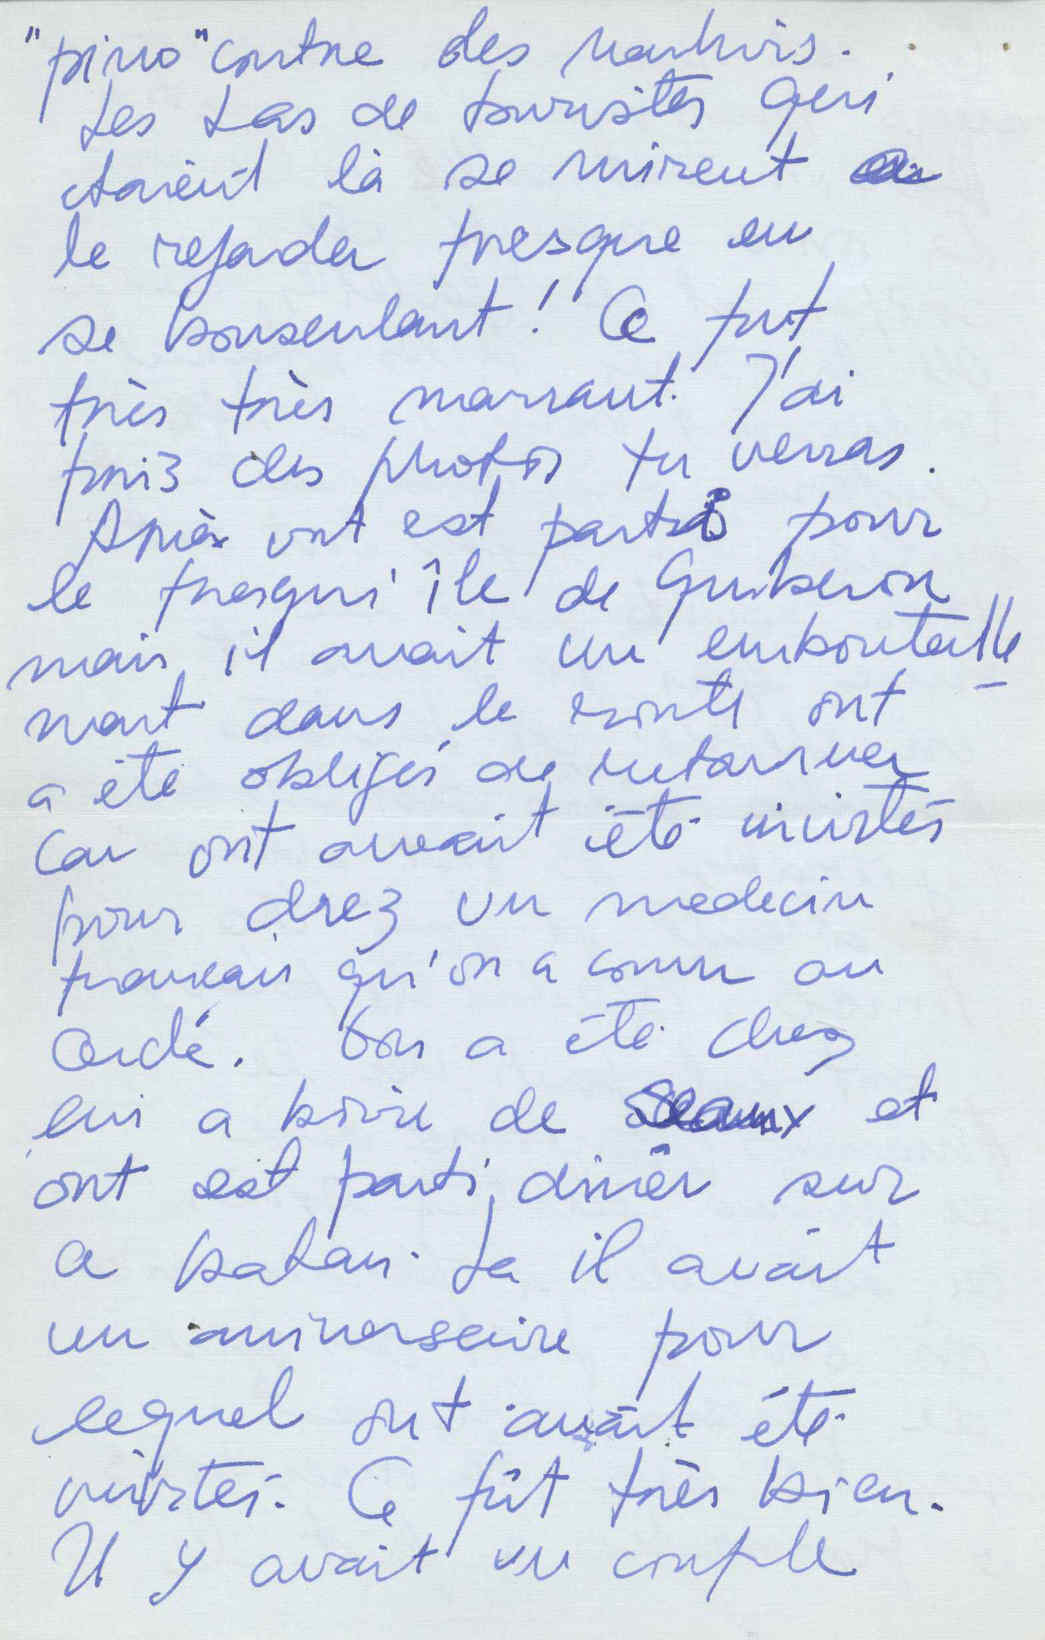 "pino" contre des menhirs.
Les tas de touristes qui
etaient là se mirent a
le regarder presque en
se bousculant! Ce fut
très très marrant. J'ai
pris des photos tu verras.
Après ont est partis pour
le presqu'île de Quiberon
mais il avait un embouteille
ment dans le route ont
a été obligés de retourner
car ont avait été invités
pour chez un medecin
français qu'on a connu au
Cerclé. Bon a été chez
lui a boire de Seaux et
ont est parti dinêr sur
a batau. La il avait
un aniversaire pour
lequel ont avait été
invités. Ce fût très bien.
Il y avait un couple